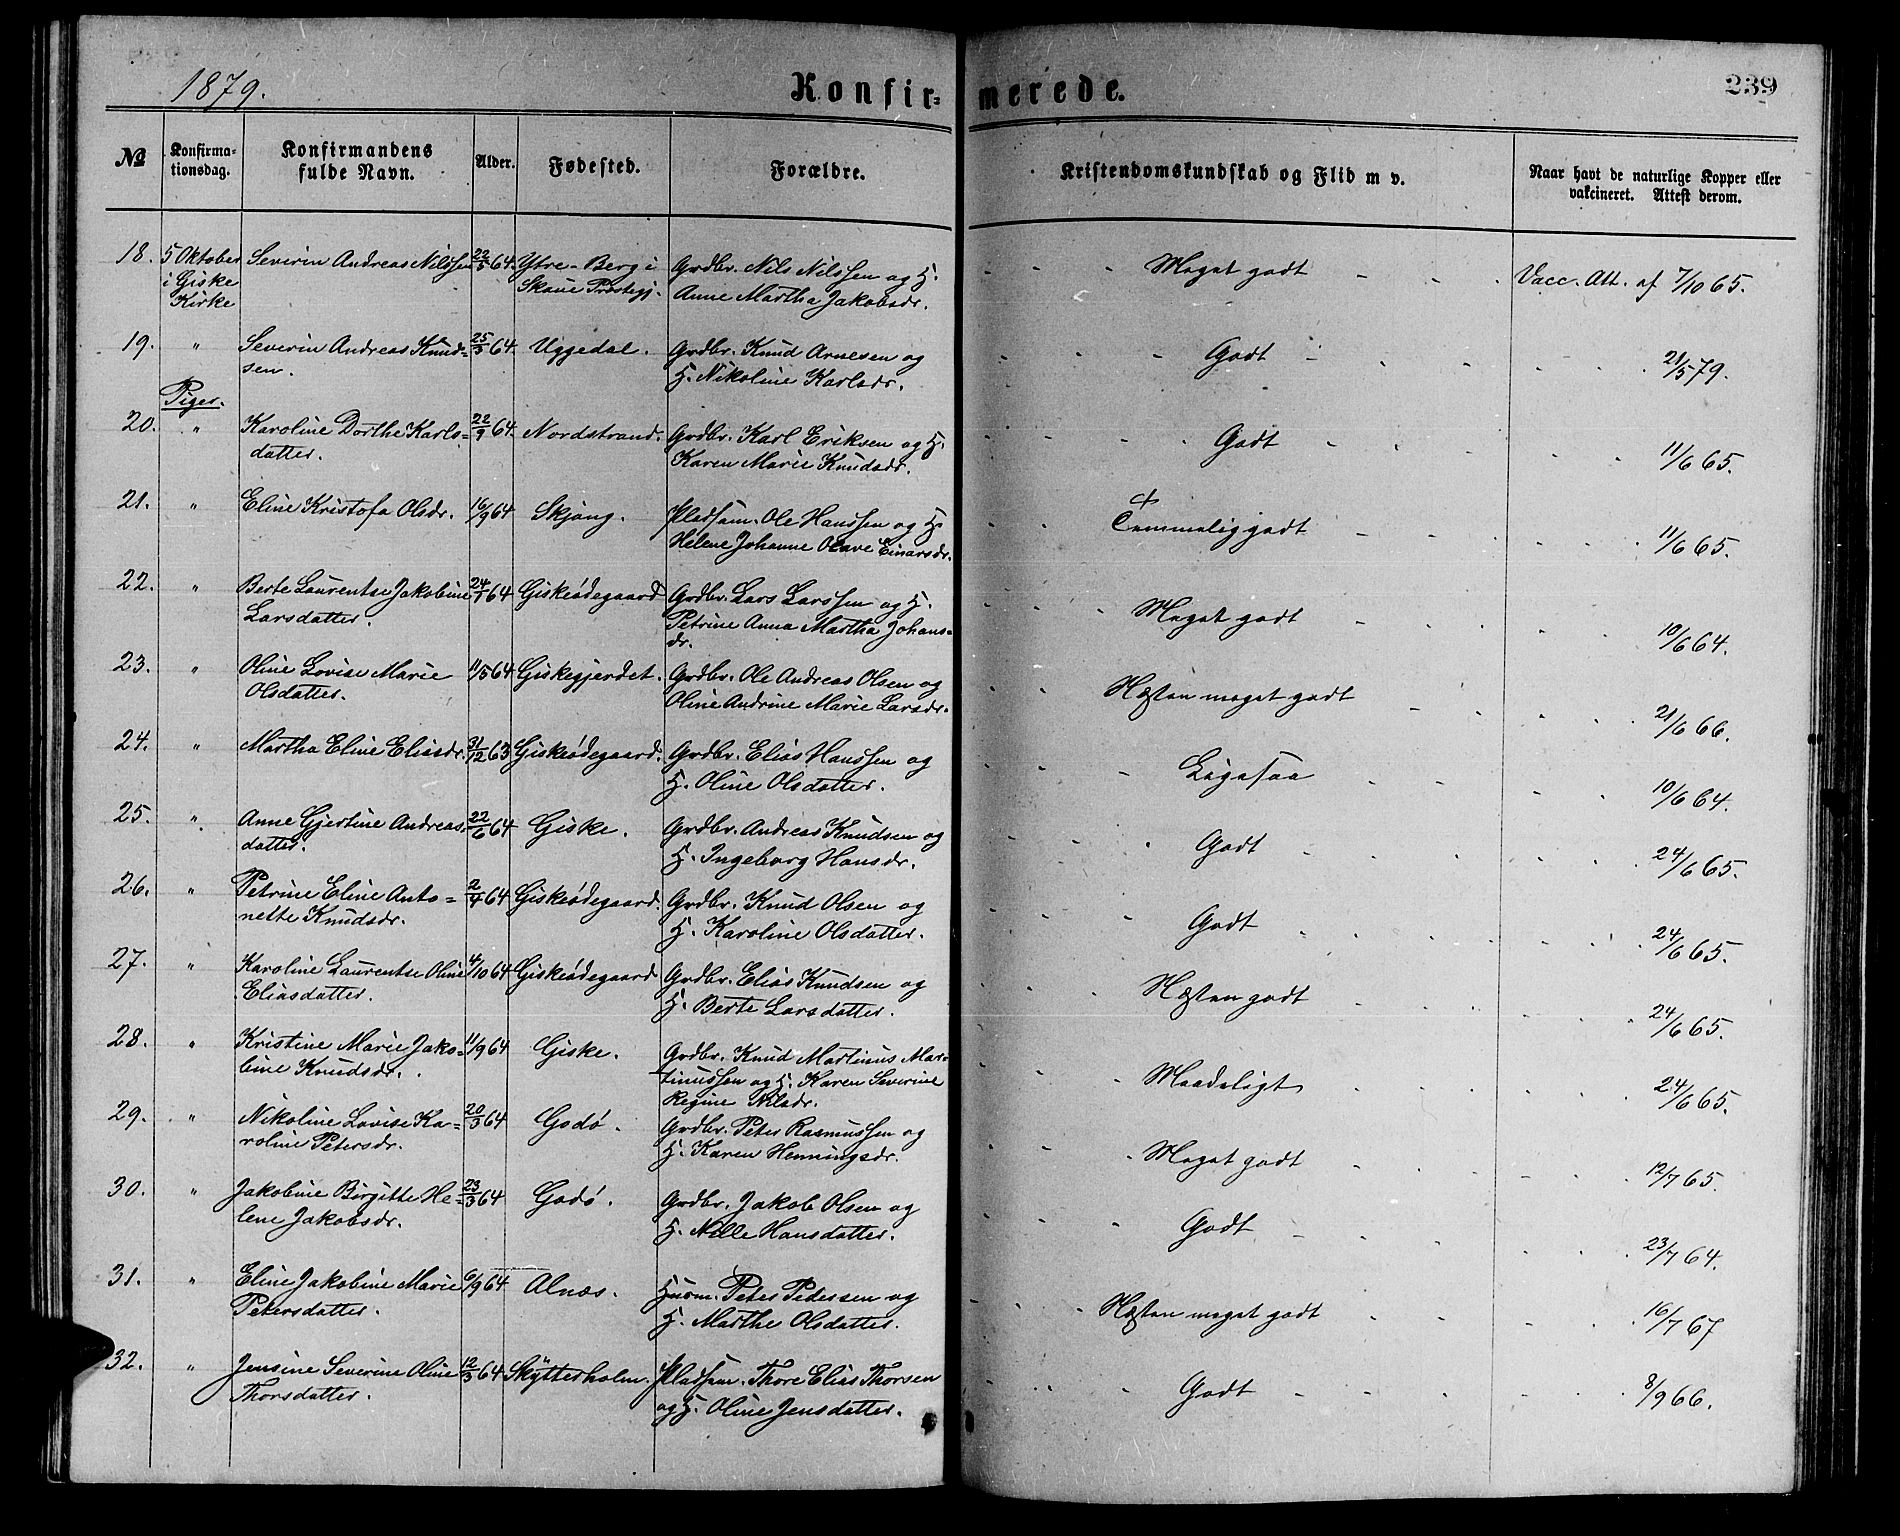 1879.
Konfir=
merede.
239
No
Konfirma-
tionsdag.
Konfirmandens
fulde Navn.
Alder.
Fødested.
Forældre.
Kristendomskundskab og Flid m v.
Naar havt de naturlige Kopper eller
vakcineret. Attest derom.
18. 5 Oktober Severin Andreas Nilssen 22/5 64. Ytre-Berg i Grdbr. Nils Nilssen og H. Meget godt Vacc. Att. af 7/10 65.
i Giske Skaue Prestegj. Anne Martha Jakobsdr.
Kirke
19. " Severin Andreas Knud= 25/3 64. Uggedal. Grdbr. Knud Arnesen og Godt 21/5 79.
sen. H. Nikoline Karlsdr.
Piger.
20. " Karoline Dorthe Karls= 22/9 64. Nordstrand. Grdbr. Karl Eriksen og H. Godt 11/6 65.
datter. Karen Marie Knudsdr.
21. " Eline Kristofa Olsdr. 16/9 64 Skjong. Pladsm. Ole Hanssen og H. Temmelig godt 11/6 65.
Helene Johanne Olave Einarsdr.
22. " Berte Laurentse Jakobine 24/1 64 Giskeødegaard Grdbr. Lars Larssen og H. Meget godt 10/6 64.
Larsdatter. Petrine Anna Martha Johans=
dr.
23. " Oline Lovise Marie 11/5 64 Giskegjerdet. Grdbr. Ole Andreas Olsen og Næsten meget godt 21/6 66.
Olsdatter. Oline Andrine Marie Larsdr.
24. " Martha Eline Eliasdr. 31/12 63 Giskeødegaard. Grdbr. Elias Hanssen og Ligesaa 10/6 64.
H. Oline Olsdatter.
25. " Anne Gjertine Andreas= 22/6 64 Giske. Grdbr. Andreas Knudsen og Godt 24/6 65.
datter. H. Ingeborg Hansdr.
26. " Petrine Eline Anto= 2/4 64 Giskeødegaard. Grdbr. Knud Olsen og Godt 24/6 65.
nette Knudsdr. H. Karoline Olsdatter.
27. " Karoline Laurentse Oline 4/10 64 Giskeødegaard Grdbr. Elias Knudsen og Næsten godt 24/6 65.
Eliasdatter. H. Berte Larsdatter.
28. " Kristine Marie Jako= 11/9 64 Giske. Grdbr. Knud Martinus Mar- Maadeligt 24/6 65.
bine Knudsdr. tinussen og H. Karen Severine
Regine Nilsdr.
29. " Nikoline Lovise Ka= 20/3 64 Godø. Grdbr. Peter Rasmussen og Meget godt 12/7 65.
roline Petersdr. H. Karen Henningsdr.
30. " Jakobine Birgitte He= 23/3 64 Godø. Grdbr. Jakob Olsen og Godt 23/7 64.
lene Jakobsdr. H. Nille Hansdatter.
31. " Eline Jakobine Marie 6/9 64 Alnæs. Husm. Peter Pedersen og Næsten meget godt 16/7 67
Petersdatter. H. Marthe Olsdatter.
32. " Jensine Severine Oline 12/3 64 Skytterholm. Pladsm. Thore Elias Thorsen Godt 8/9 66.
Thorsdatter. og H. Oline Jensdatter.